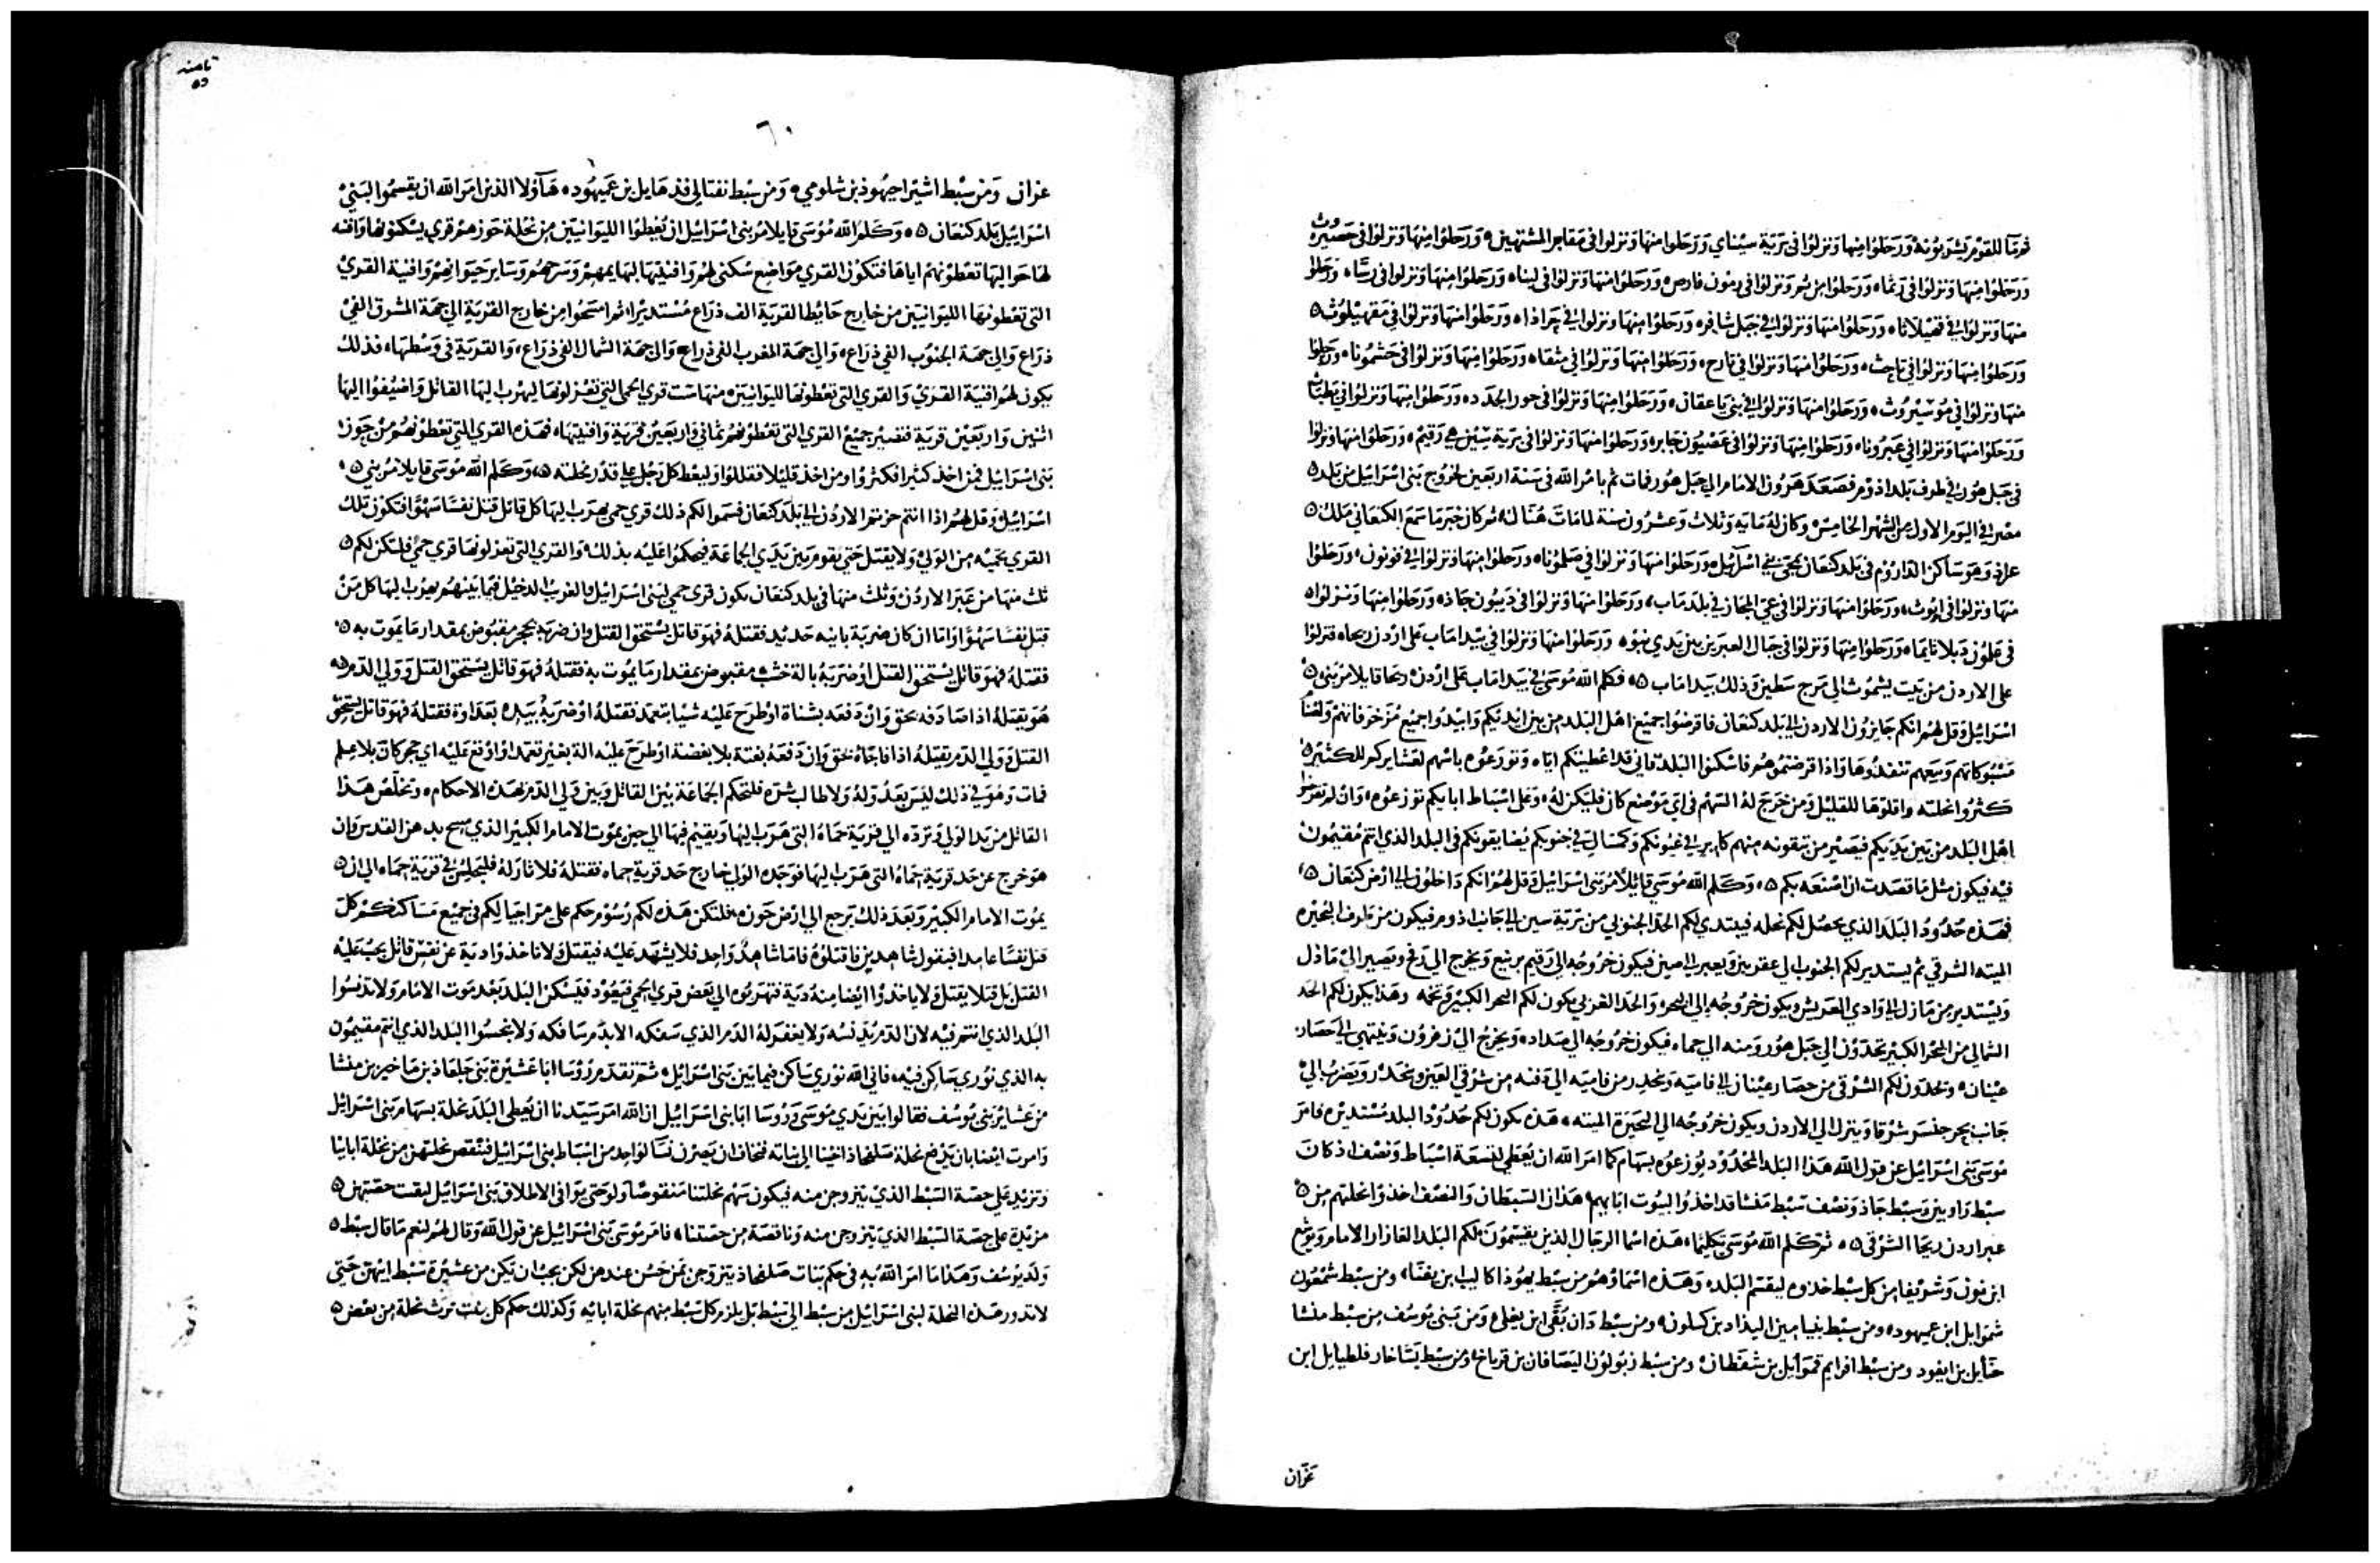 ثم ما للقوم يشربونه ورحلوا منها ونزلوا في برية سيناي ورحلوا منها ونزلوا في مقابر المشتهين ورحلوا منها ونزلوا في حصيروث
ورحلوا منها ونزلوا في رثماه ورحلوا من ثم ونزلوا في رمون فارص ورحلوا منها ونزلوا في لبناه ورحلوا منها ونزلوا في رساه ورحلوا
منها ونزلوا في قهيلاثاه ورحلوا منها ونزلوا في جبل شافره ورحلوا منها ونزلوا في حراذاه ورحلوا منها ونزلوا في مقهيلوث
ورحلوا منها ونزلوا في تاحث ورحلوا منها ونزلوا في تارح ورحلوا منها ونزلوا في مثقاه ورحلوا منها ونزلوا في حشموناه ورحلوا
منها ونزلوا في موسيروث ورحلوا منها ونزلوا في بني ياعقان ورحلوا منها ونزلوا في حور الجدده ورحلوا منها ونزلوا في يطباث
ورحلوا منها ونزلوا في عبروناه ورحلوا منها ونزلوا في عصيون جابره ورحلوا منها ونزلوا في برية سين هي رقيم ورحلوا منها ونزلوا
في جبل هور في طرف بلد اذوم فصعد هرون الامام الى جبل هور فات ثم بامر الله في سنة اربعين لخروج بني اسرائيل من بلد
مصر في اليوم الاول من الشهر الخامس وكان له مايه وثلاث وعشرون سنة لما مات هناك ثم كان خبر ما سمع الكنعاني ملك
عراد وهو ساكن الداروم في بلد كنعان بمجي بني اسرآئيل ورحلوا منها ونزلوا في صلموناه ورحلوا منها ونزلوا في فونون ورحلوا
منها ونزلوا في ابوث ورحلوا منها ونزلوا في عي المجاز في بلد ماب ورحلوا منها ونزلوا في ديبون جاذ ورحلوا منها ونزلوا
في علمون دبلاتايماه ورحلوا منها ونزلوا في جبال العبرين بين يدي نبوه ورحلوا منها ونزلوا في بيدا ماب على اردن ريحاه فنزلوا
على الاردن من بيت يشموث الى مرج سطين وذلك بيدا ماب فكلم الله موسى في بيدا ماب على اردن ريحا قايلا مر بني
اسرائيل وقل لهم انكم جايزون الاردن الى بلد كنعان فاقرضوا جميع اهل البلد من بين ايديكم وابيدوا جميع مزخرفاتهم
كثروا نحلته واقلوها للقليل ومن خرج له السهم في اي موضع كان فليكن له وعلى اسباط ابايكم توزعوه وان لم تقرضوا
اهل البلد من بين يديكم فيصير من تبقونه منهم كابر في عيونكم وكمسال في جنوبكم يضايقونكم في البلد الذي انتم مقيمون
فيه فيكون مثل ما قصدت ان اصنعه بكم وكلم الله موسى قايلا مر بني اسرائيل وقل لهم انكم داخلون الى ارض كنعان
فهذه حدود البلد الذي يحصل لكم نحله فيبتدي لكم الحد الجنوبي من برية سين الى جانب اذوم فيكون من طرف البحيره
الميته الشرقي ثم يستدير لكم الجنوب الى عقربين ويعبر الى صين فيكون خروجه الى رقيم برنيع ويخرج الى رفح ويصير الى مازل
ويستدير من مازل الى وادي العريش ويكون خروجه الى البحر والحد الغربي يكون لكم البحر الكبير وتخمه وهذا يكون لكم الحد
الشمالي من البحر الكبير تحددون الى جبل هور ومنه الى حماه فيكون خروجه الى صداد ويخرج الى زفرون وينتهي الى حصار
عينان وتحدون لكم الشرقي من حصار عينان الى فاميه وينحدر من فاميه الى دفنه من شرقي العين وينحدر ويضرب الى
جانب بحر جنسر شرقا وينزل الى الاردن ويكون خروجه الى البحيرة الميته هذه يكون لكم حدود البلد مستديره فامر
موسى بني اسرائيل عن قول الله هذا البلد المحدود توزعوه بسهام كما امر الله ان يعطى لتسعة اسباط ونصف اذ كان
سبط راوبين وسبط جاذ ونصف سبط منشا قد اخذوا لبيوت ابايهم هذان السبطان والنصف اخذوا نحلتهم من
عبر اردن ريحا الشرقي ثم كلم الله موسى تكليما هذه اسما الرجال الذين يقسمون لكم البلد العازار الامام ويوشع
ابن نون وشريفا من كل سبط خذوه ليقسم البلد وهذه اسماوهم من سبط يهوذا كالب ابن يفنا ومن سبط شمعون
شموايل ابن عميهود ومن سبط بنيامين اليذاد بن كسلون ومن سبط دان بقي ابن يغلي ومن بني يوسف من سبط منشا
حنايل بن ايفود ومن سبط افرايم قموايل بن شفطان ومن سبط زبولون اليصافان بن فرناخ ومن سبط يشاخار فلطيايل ابن
عزان
ثامنه
٦٠
عزان ومن سبط اشير احيهوذ بن شلومي ومن سبط نفتالي فذهايل بن عميهود هآولا الذين امر الله ان يقسموا لبني
اسرائيل بلد كنعان وكلم الله موسى قايلا مر بني اسرائيل ان يعطوا الليوانيين من نحلة حوزهم قرى يسكنونها وافنيه
لها حواليها تعطونهم اياها فتكون القرى مواضع سكنى لهم وافنيتها لبهايمهم وسرحهم وساير حيوانهم وافنية القرى
التي تعطونها الليوانيين من خارج حايط القرية الف ذراع مستديرا ثم امسحوا من خارج القرية الى جهة المشرق الفي
ذراع والى جهة الجنوب الفي ذراع والى جهة المغرب الفي ذراع والى جهة الشمال الفي ذراع والقرية في وسطها فذلك
يكون لهم افنية القرى والقرى التي تعطونها لليوانيين منها ست قرى الحمى التي تعزلونها ليهرب اليها القاتل واضيفوا اليها
اثنين واربعين قرية فتصير جميع القرى التي تعطونهم ثماني واربعين قرية وافنيتها فهذه القرى التي تعطونهم من حوز
بني اسرائيل فمن اخذ كثيرا فكثروا ومن اخذ قليلا فقللوا وليعط كل رجل على قدر نحلته وكلم الله موسى قايلا مر بني
اسرائيل وقل لهم اذا انتم جزتم الاردن الى بلد كنعان فسموا لكم ذلك قرى حمى يهرب اليها كل قاتل قتل نفسا سهوا فتكون تلك
القرى تحميه من الولي ولا يقتل حتى يقوم بين يدي الجماعة فيحكموا عليه بذلك والقرى التي تعزلونها قرى حمى فلتكن لكم
ثلث منها من عبر الاردن وثلث منها في بلد كنعان تكون قرى حمى لبني اسرائيل والغريب الدخيل فيما بينهم يهرب اليها كل من
قتل نفسا سهوا واما ان كان ضربة بانيه حديد فقتله فهو قاتل يستحق القتل وان ضربه بحجر مقبوض بمقدار ما يموت به
فقتله فهو قاتل يستحق القتل او ضربه بالة خشب مقبوض بمقدار ما يموت به فقتله فهو قاتل يستحق القتل وولي الدم
هو يقتله اذا صادفه بحق وان دفعه بشناة او طرح عليه شيا بتعمد فقتله او ضربه بيده بعداوة فقتله فهو قاتل يستحق
القتل وولي الدم يقتله اذا فاجاه بحق وان دفعه بغتة بلا بغضة او طرح عليه الة بغير تعمد او اوقع عليه اي حجر كان بلا علم
فمات وهو في ذلك ليس بعدو له ولا طالب شره فلتحكم الجماعة بين القاتل وبين ولي الدم بهذه الاحكام وتخلص هذا
القاتل من يد الولي وترده الى قرية حماه التي هرب اليها ويقيم فيها الى حين يموت الامام الكبير الذي مسح بدهن القدس وان
هو خرج عن حد قرية حماه التي هرب اليها فوجده الولي خارج حد قرية حماه فقتله فلا ثار له فليجلس في قرية حماه الى ان
يموت الامام الكبير وبعد ذلك يرجع الى ارض حوزه فلتكن هذه لكم رسوم حكم على مر اجيالكم في جميع مساكنكم كل
قتل نفسا عامدا فبقول شاهدين فاقتلوه فاما شاهد واحد فلا يشهد عليه فيقتل ولا تاخذوا دية عن نفس قاتل يجب عليه
القتل بل قتلا يقتل ولا ياخذوا ايضا منه دية فتهربوه الى بعض قرى الحمى فيعود فيسكن البلد بعد موت الامام ولا تدنسوا
البلد الذي انتم فيه لان الدم يدنسه ولا يغفر له الدم الذي سفكه الا بدم سافكه ولا تنجسوا البلد الذي انتم مقيمون
به الذي نوري ساكن فيه فاني الله نوري ساكن فيما بين بني اسرائيل ثم تقدم رؤسا ابا عشيرة بني جلعاذ بن ماخير بن منشا
من عشاير بني يوسف فقالوا بين يدي موسى ورؤسا ابا بني اسرائيل ان الله امر سيدنا ان يعطي البلد نحلة بسهام بني اسرائيل
وامرت ايضا بان يدفع نحلة صلفحاذ اخينا الى بناته فنخاف ان يصرن نسا لواحد من اسباط بني اسرائيل فتنقص نحلتهن من نحلة اباينا
وتزيد على حصة السبط الذي يتزوجن منه فيكون سهم نحلتنا منقوصا ولو حتى يوافى الاطلاق بني اسرائيل لبقت حصتهن
مزيدة على حصة السبط الذي يتزوجن منه وناقصة من حصتنا فامر موسى بني اسرائيل عن قول الله وقال لهم لنعم ما قال سبط
ولد يوسف وهذا ما امر الله به في حكم بنات صلفحاذ يتزوجن بمن حسن عندهن لكن يجب ان يكن من عشيرة سبط ابيهن حتى
لا تدور هذه النحلة لبني اسرائيل من سبط الى سبط بل يلزم كل سبط منهم نحلة ابايه وكذلك حكم كل بنت ترث نحلة من بعض